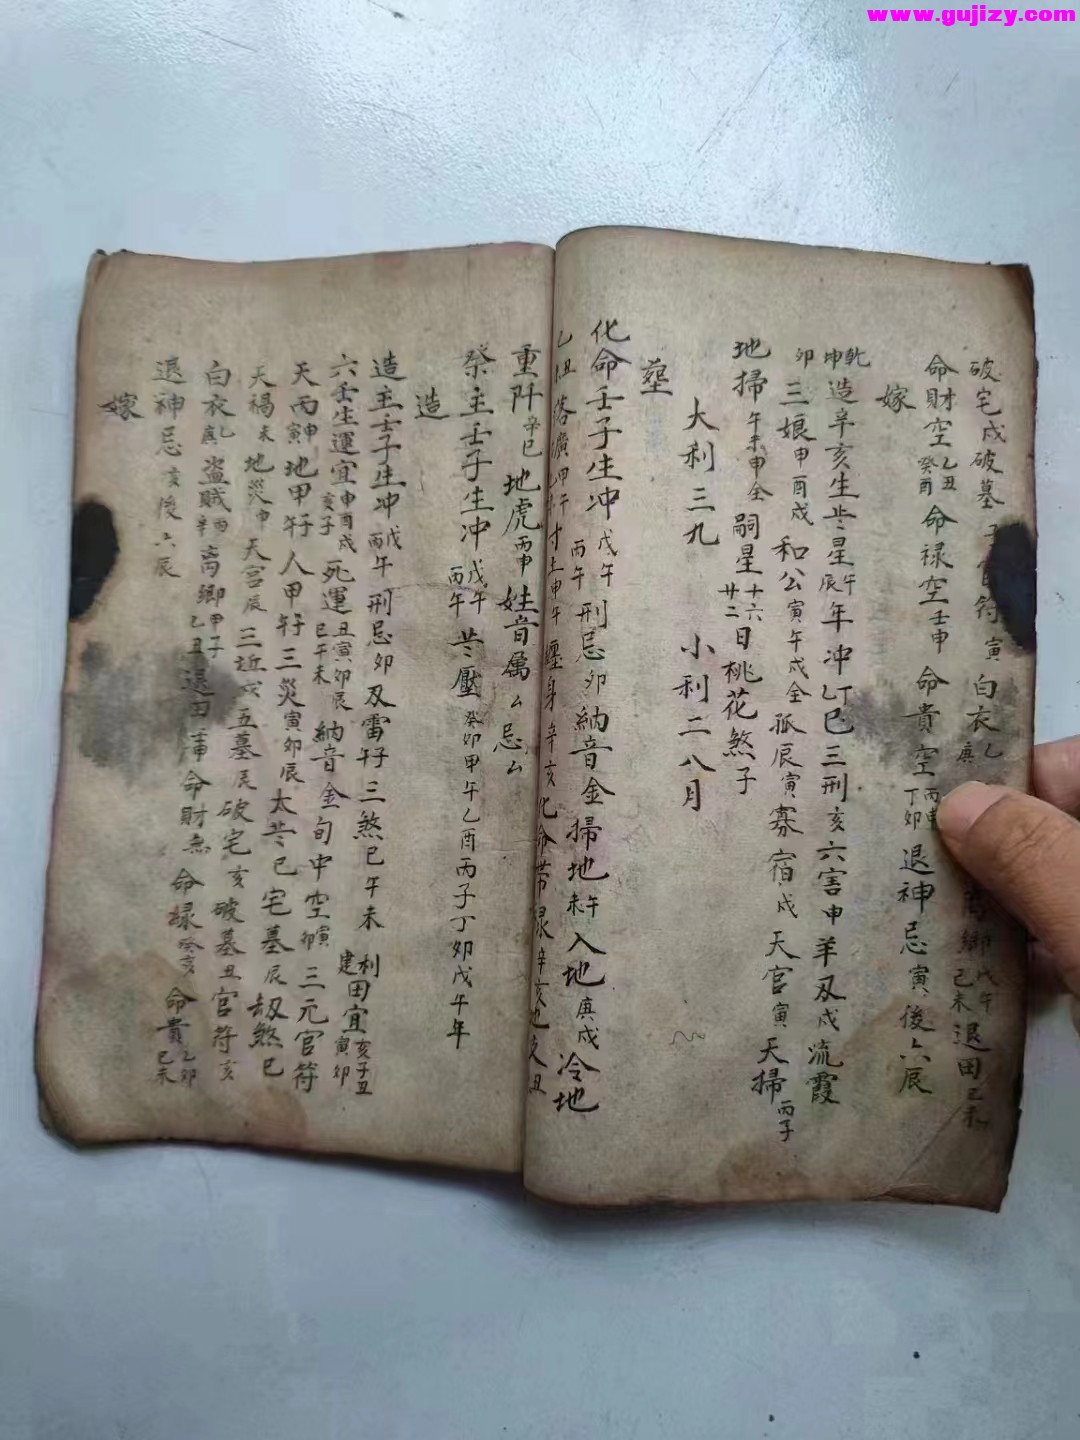 www.gujizy.com
破宅戌破墓 官符寅白衣乙庚 离鄉戊午己未退田己未
命財空乙丑癸酉命禄空壬申命貴空丙申丁卯退神忌寅後六辰
嫁
乾坤造辛亥生 星午辰年冲丁乙巳三刑亥六害申羊刃戌流霞
卯三娘申酉戌和公寅午戌全孤辰寅寡宿戌天官寅天掃丙子
地掃午未申全嗣星十六廿二日桃花煞子
大利三九 小利二八月
塟
化命壬子生冲戊午丙午刑忌卯納音金掃地午未入地庚戌冷地
乙丑 落壙甲午 纏身辛亥化命帶禄辛亥
重阡辛巳地虎丙申姓音属厶忌厶
祭主壬子生冲戊午丙午 壓癸卯甲午乙酉丙子丁卯戊午年
造
造主壬子生冲戊午丙午刑忌卯刃雷午子三煞巳午未
六壬生運宜申酉戌亥子死運丑寅卯辰巳午未納音金旬中空寅卯建田宜亥子丑寅卯
天丙申寅地甲午子人甲午子三災寅卯辰太 巳宅墓辰三元官符
天禍未地災申天宫辰三近戌五墓辰破宅亥破墓丑官符亥劫煞巳
白衣乙庚盗賊丙辛离鄉甲子乙丑退田 命財無命禄癸亥命貴乙卯己未
退神忌亥後六辰
嫁